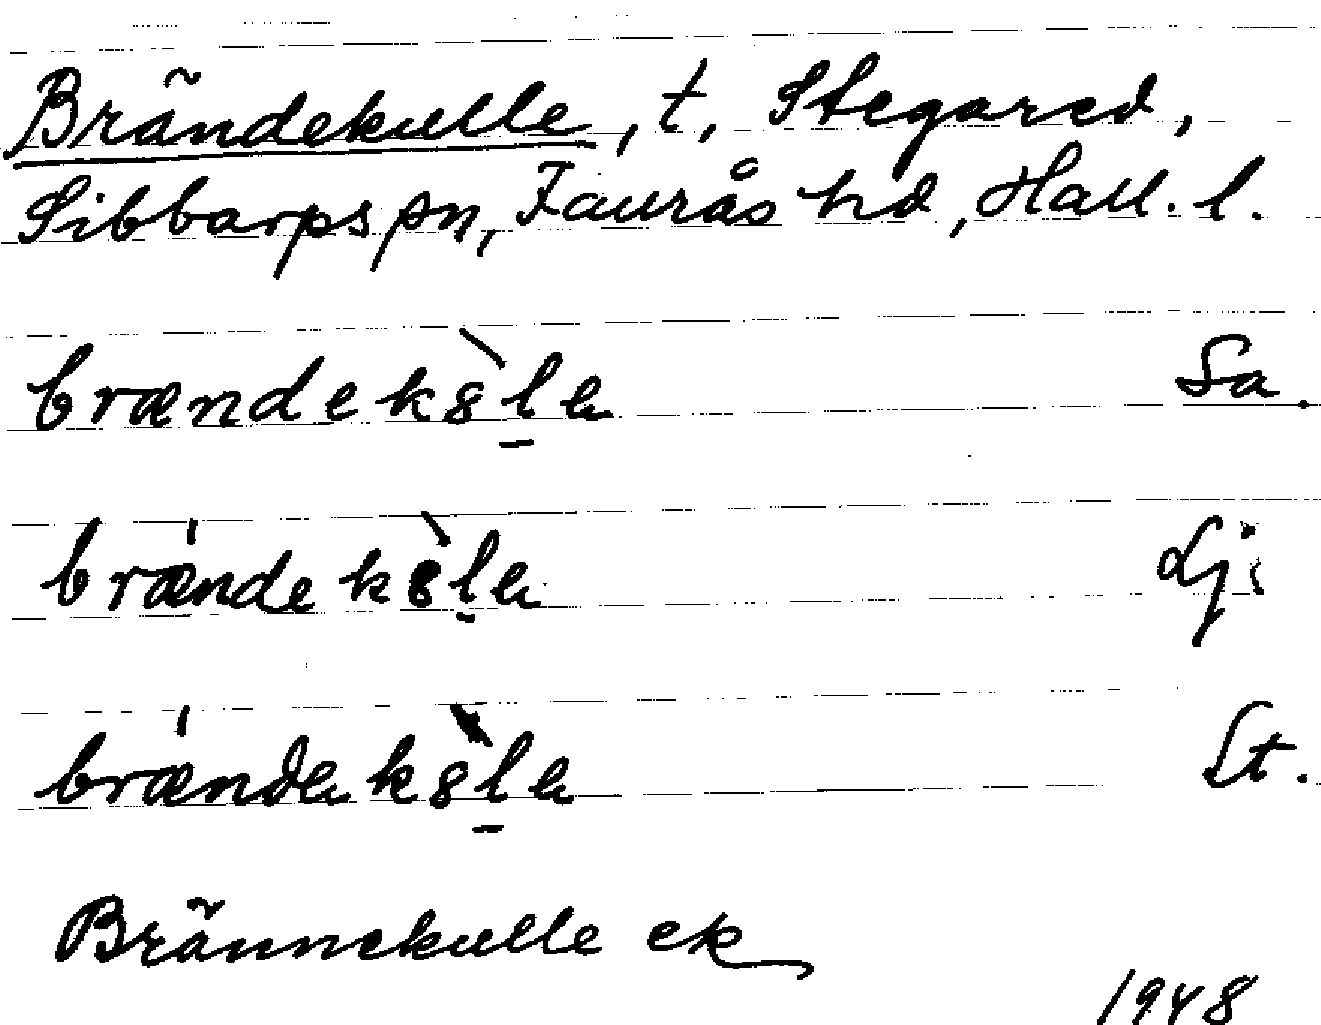 Brändekulle, t. Stegared,
Sibbarps sn, Faurås hd, Hall. l.
brændek8̀l̠e Sa.
bræ̍ndek8̀l̠e Lj.
bræ̍ndek8̀l̠e St.
Brännekulle ek
1948